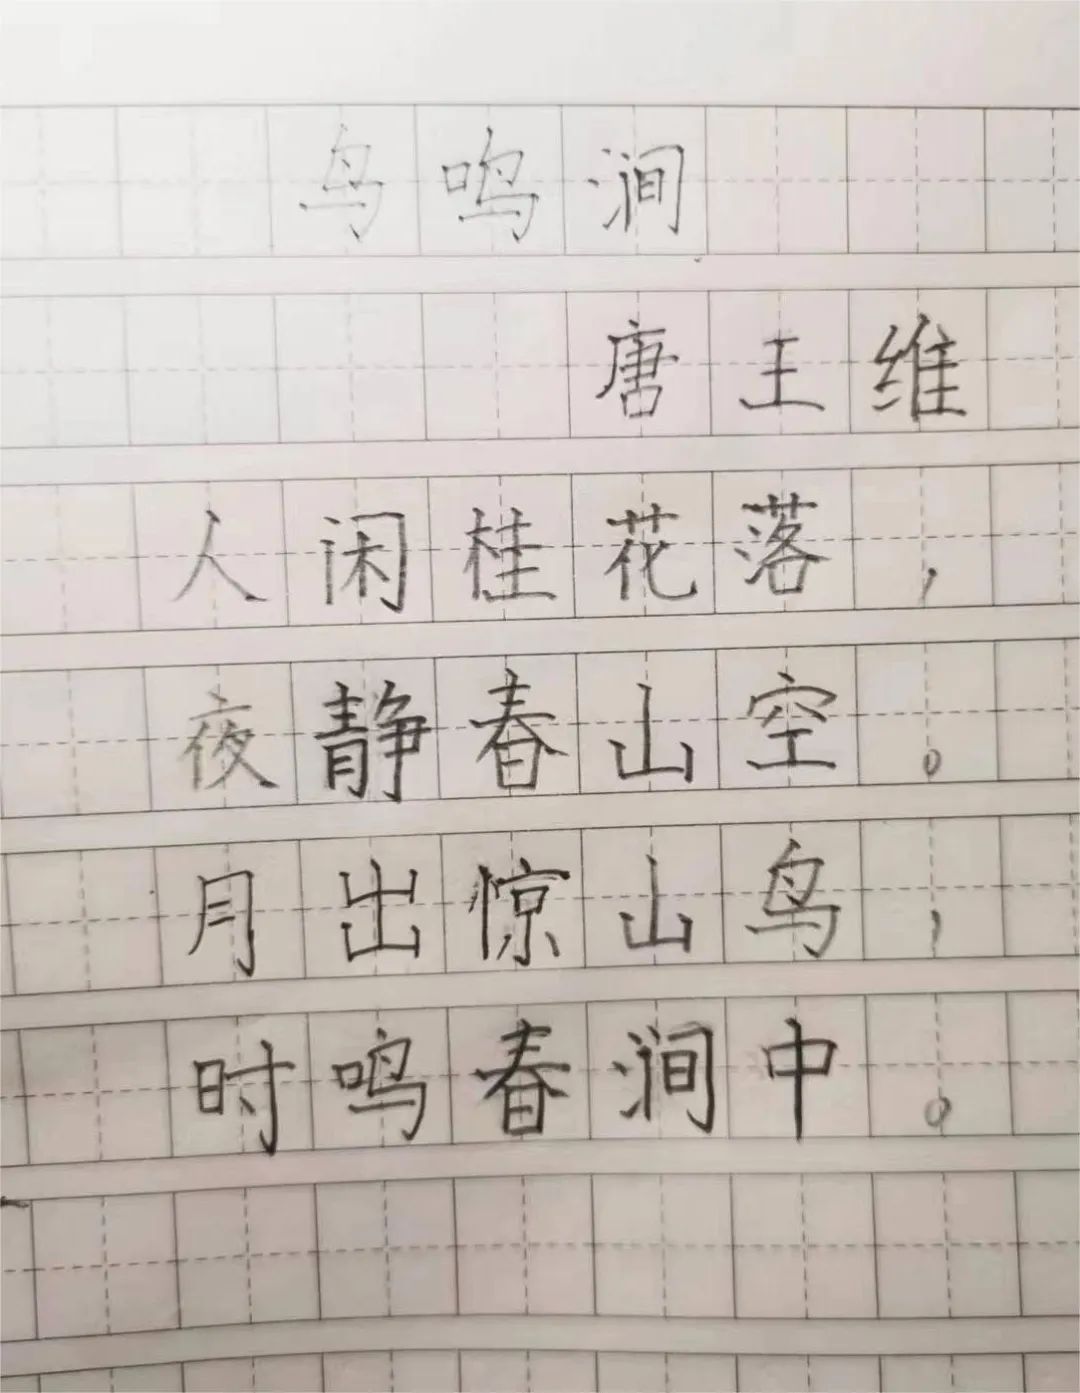 鸟鸣涧
唐王维
人闲桂花落，
夜静春山空。
月出惊山鸟，
时鸣春涧中。